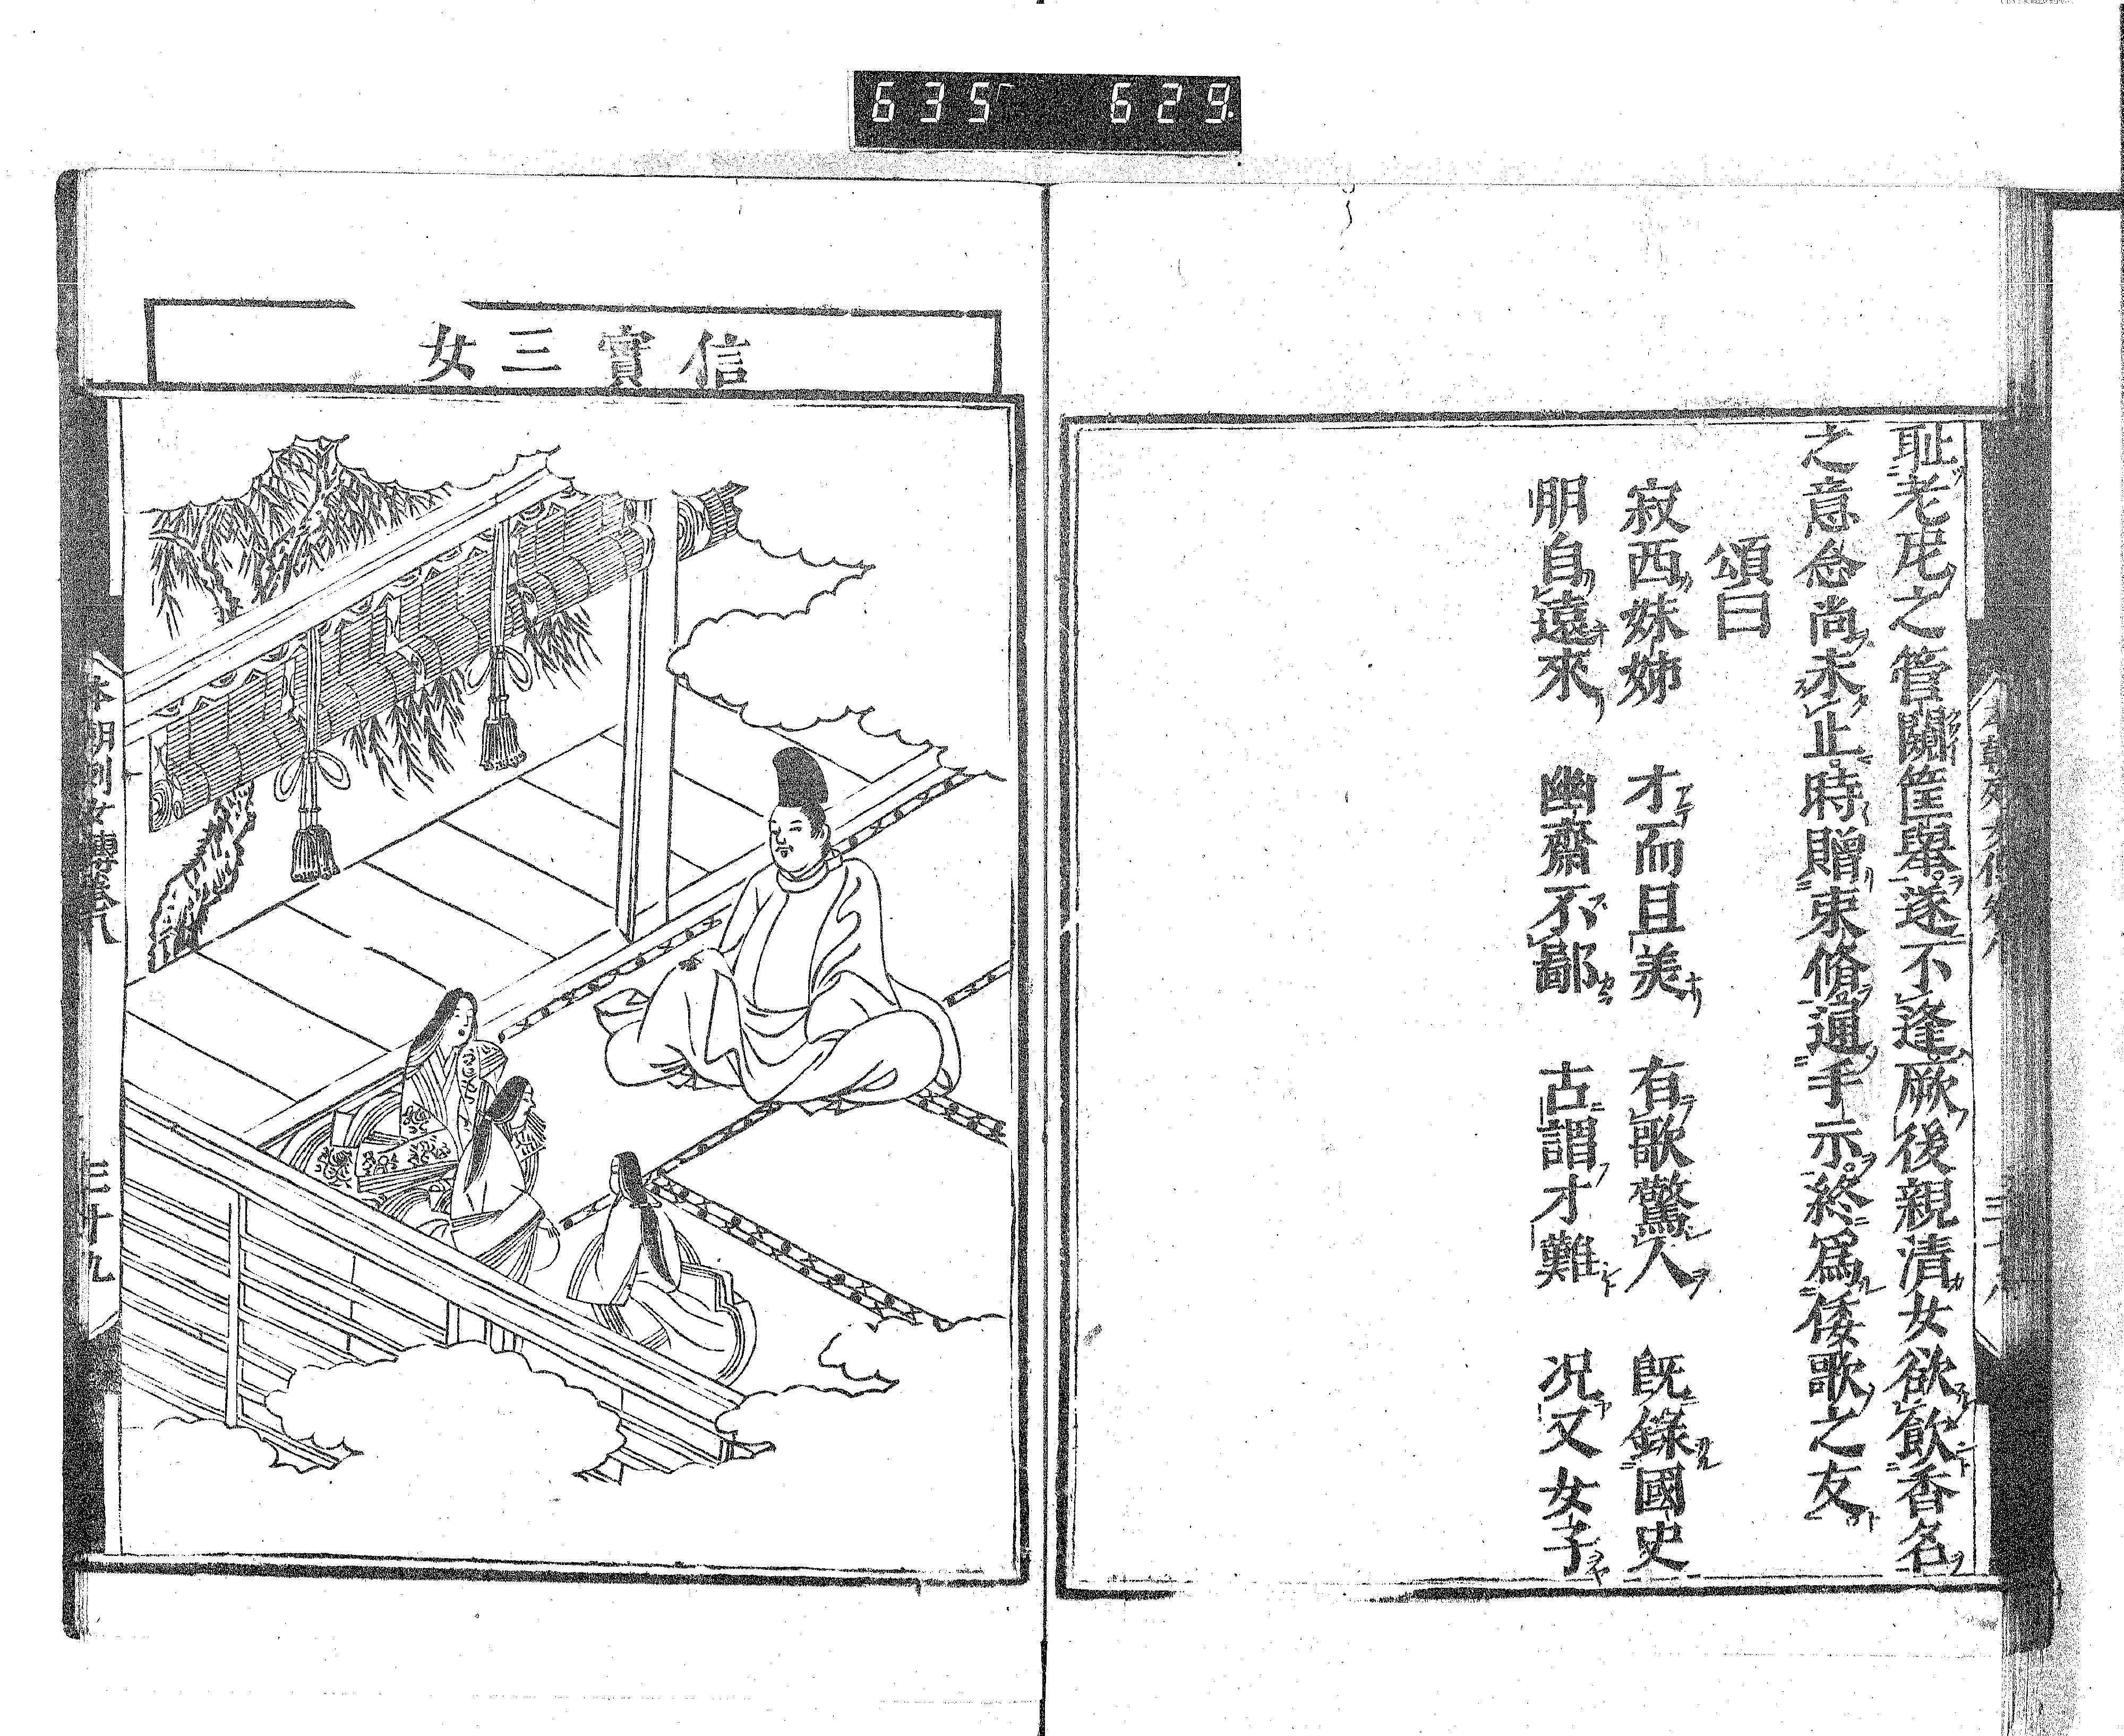 635 629
耻老尼之管闚筐舉遂不逢厥後親清女欲飮香名
之意念尚未止時贈束脩通手示終爲倭歌之友
頌曰
寂西妹姉 才而且美 有歌驚人 既錄國史
朋自遠來 幽齋不鄙 古謂才難 况又女子
信實三女
本朝列女傳卷八 三十九